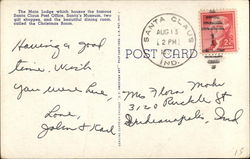 The Main Lodge which houses the famous
Santa Claus Post Office, Santa's Museum, two
gift shoppes, and the beautiful dining room
called the Christmas Room.
SANTA CLAUS
AUG 15
2 PM
IND.
POST CARD
2¢
Having a good
time. Wish
you were here,
Love,
John & Karl
Mrs Flora Mohr
3120 Ruckle St
Indianapolis, Ind